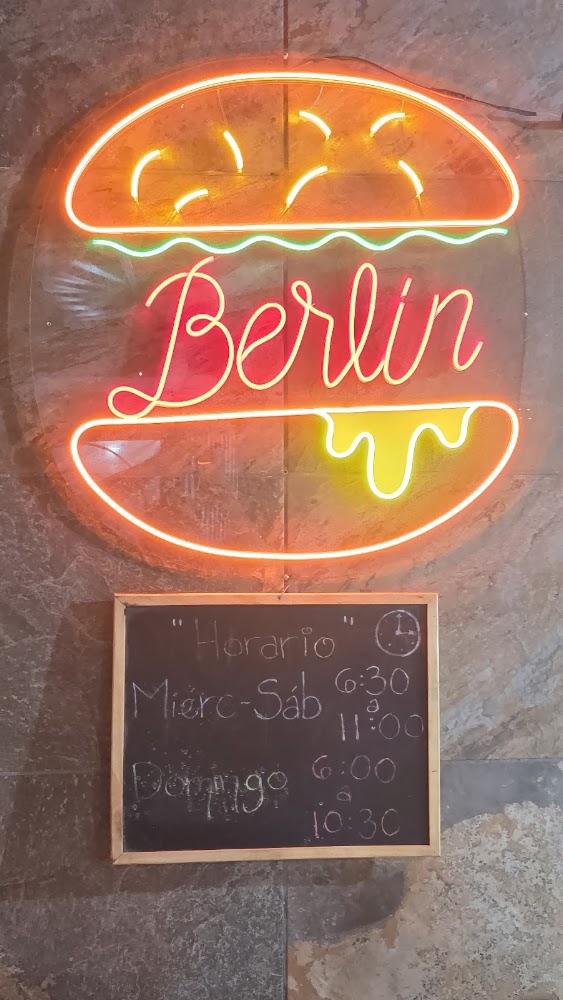 Berlin
"Horario"
Miérc-Sáb 6:30
a
11:00
Domingo 6:00
a
10:30